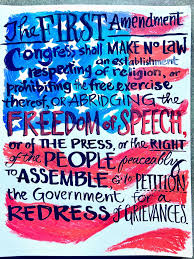 The FIRST Amendment
Congress shall MAKE No LAW
an establishment
respecting of religion, or
prohibiting the free exercise
thereof, or ABRIDGING the
FREEDOM of SPEECH,
or of THE PRESS, or the RIGHT
of the PEOPLE peaceably
to ASSEMBLE, & to PETITION
the Government for a
REDRESS of GRIEVANCES.